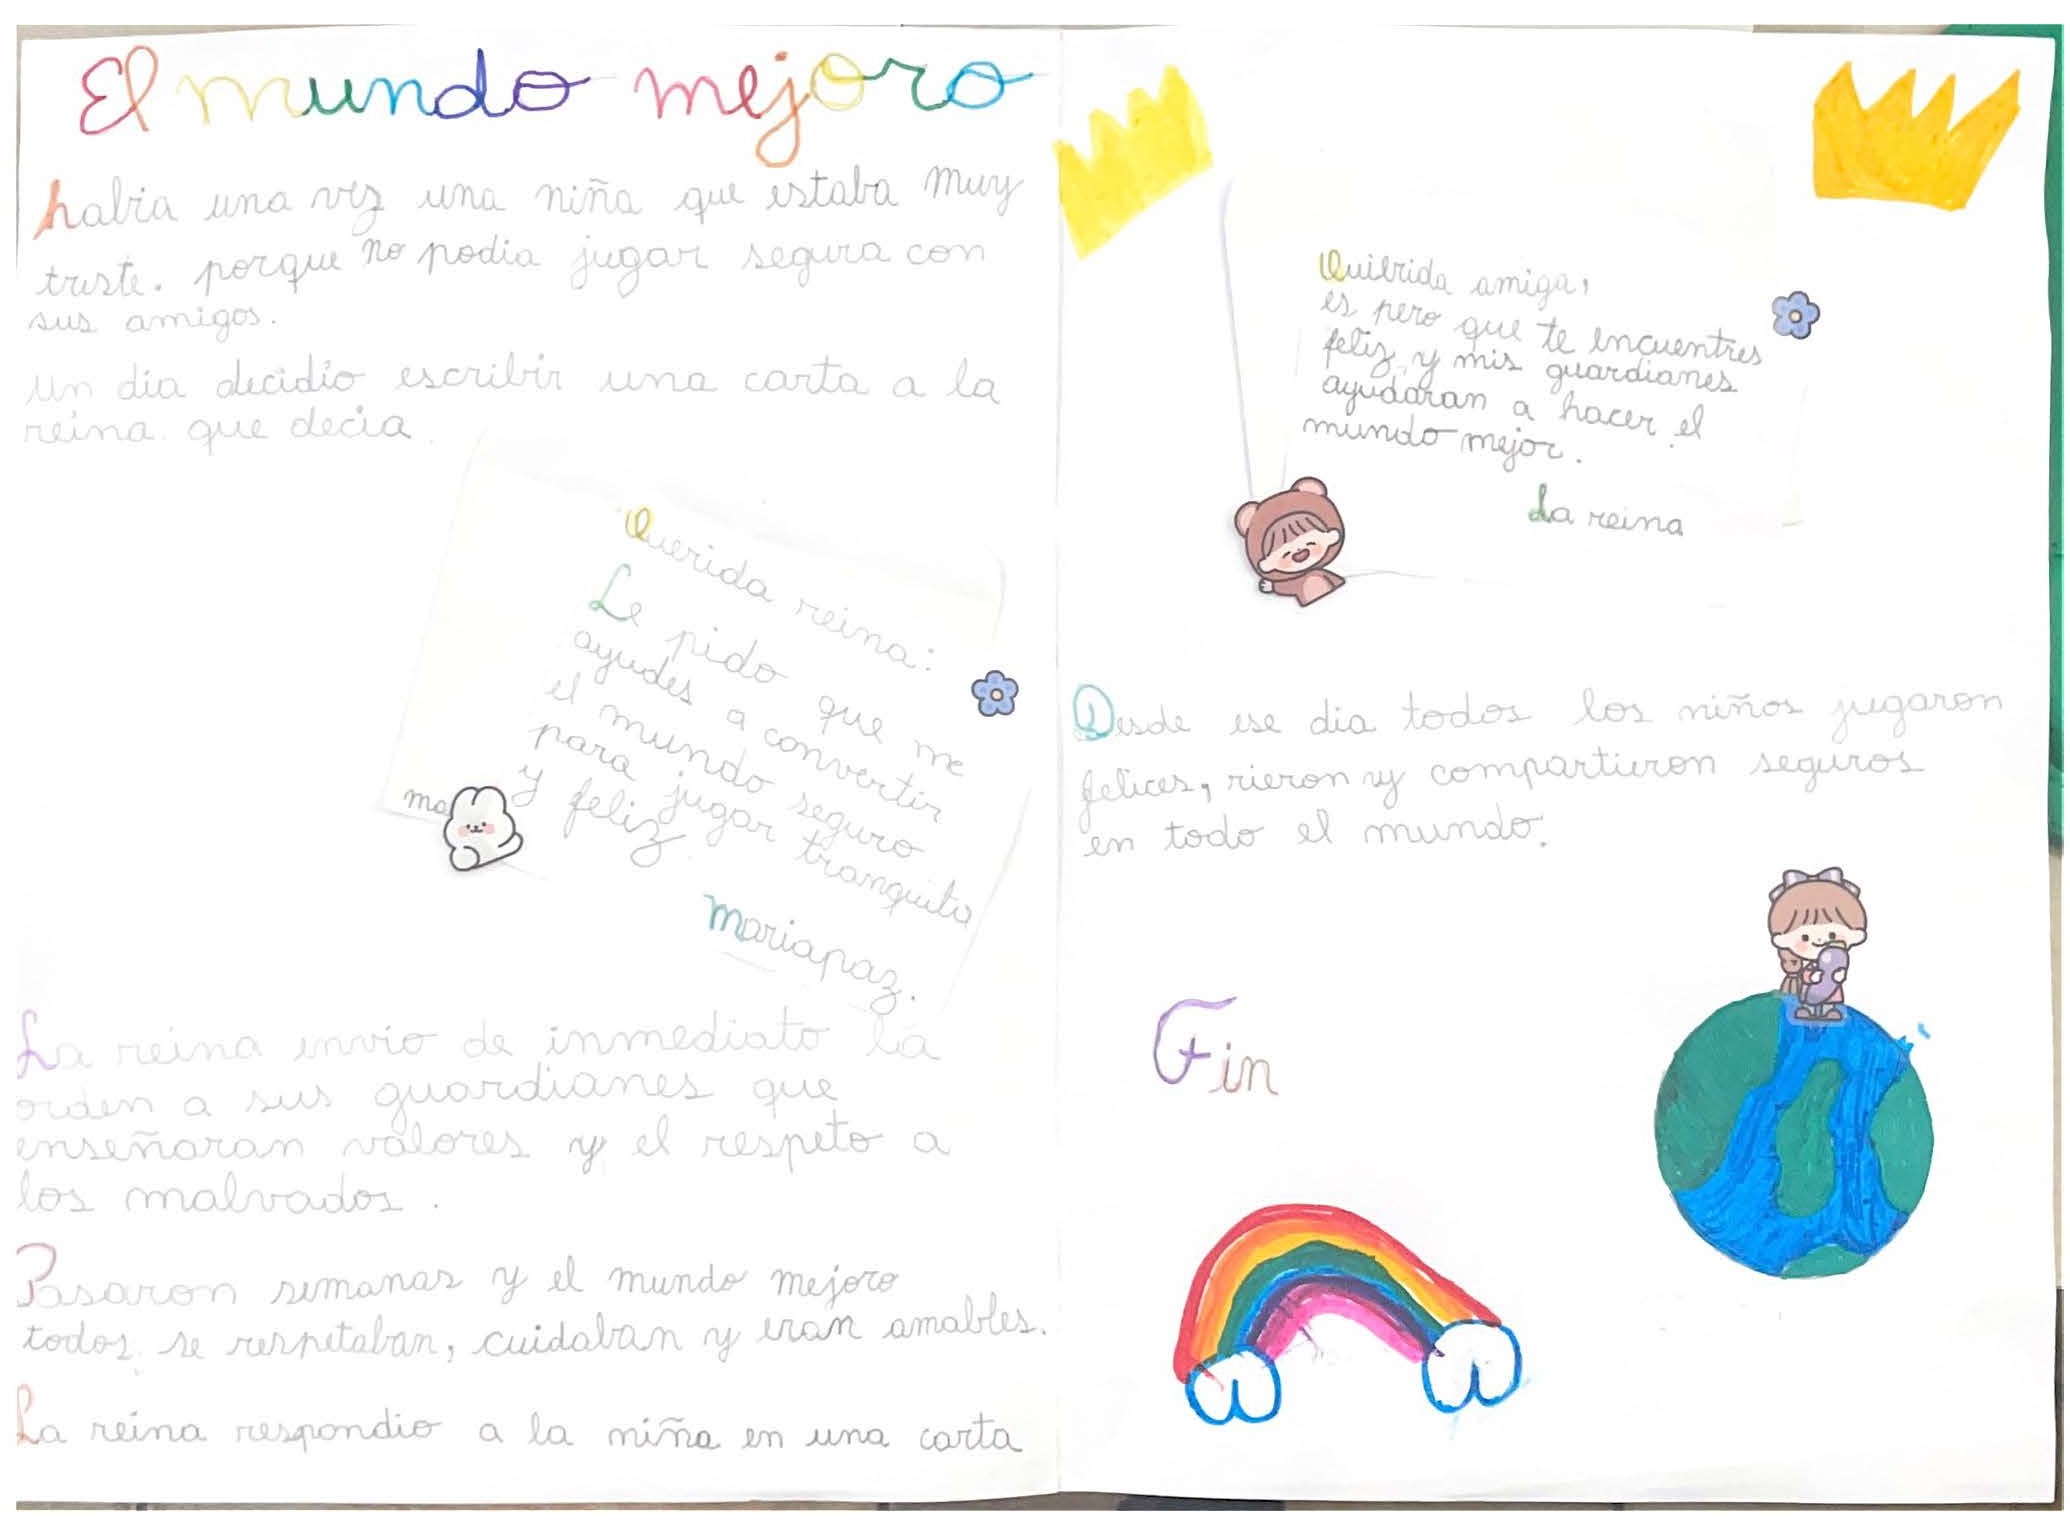 El mundo mejoro
había una vez una niña que estaba muy
triste. porque no podía jugar segura con
sus amigos.
un día decidio escribir una carta a la
reina. que decia
Querida reina:
Le pido que me
ayudes a convertir
el mundo seguro
para jugar tranquila
y feliz.
ma
Mariapaz.
La reina envio de inmediato la
orden a sus guardianes que
enseñaran valores y el respeto a
los malvados.
Pasaron semanas y el mundo mejoro
todos se respetaban, cuidaban y eran amables.
La reina respondio a la niña en una carta
Quierida amiga,
es pero que te encuentres
feliz, y mis guardianes
ayudaran a hacer el
mundo mejor.
La reina
Desde ese dia todos los niños jugaron
felices, rieron y compartieron seguros
en todo el mundo.
Fin